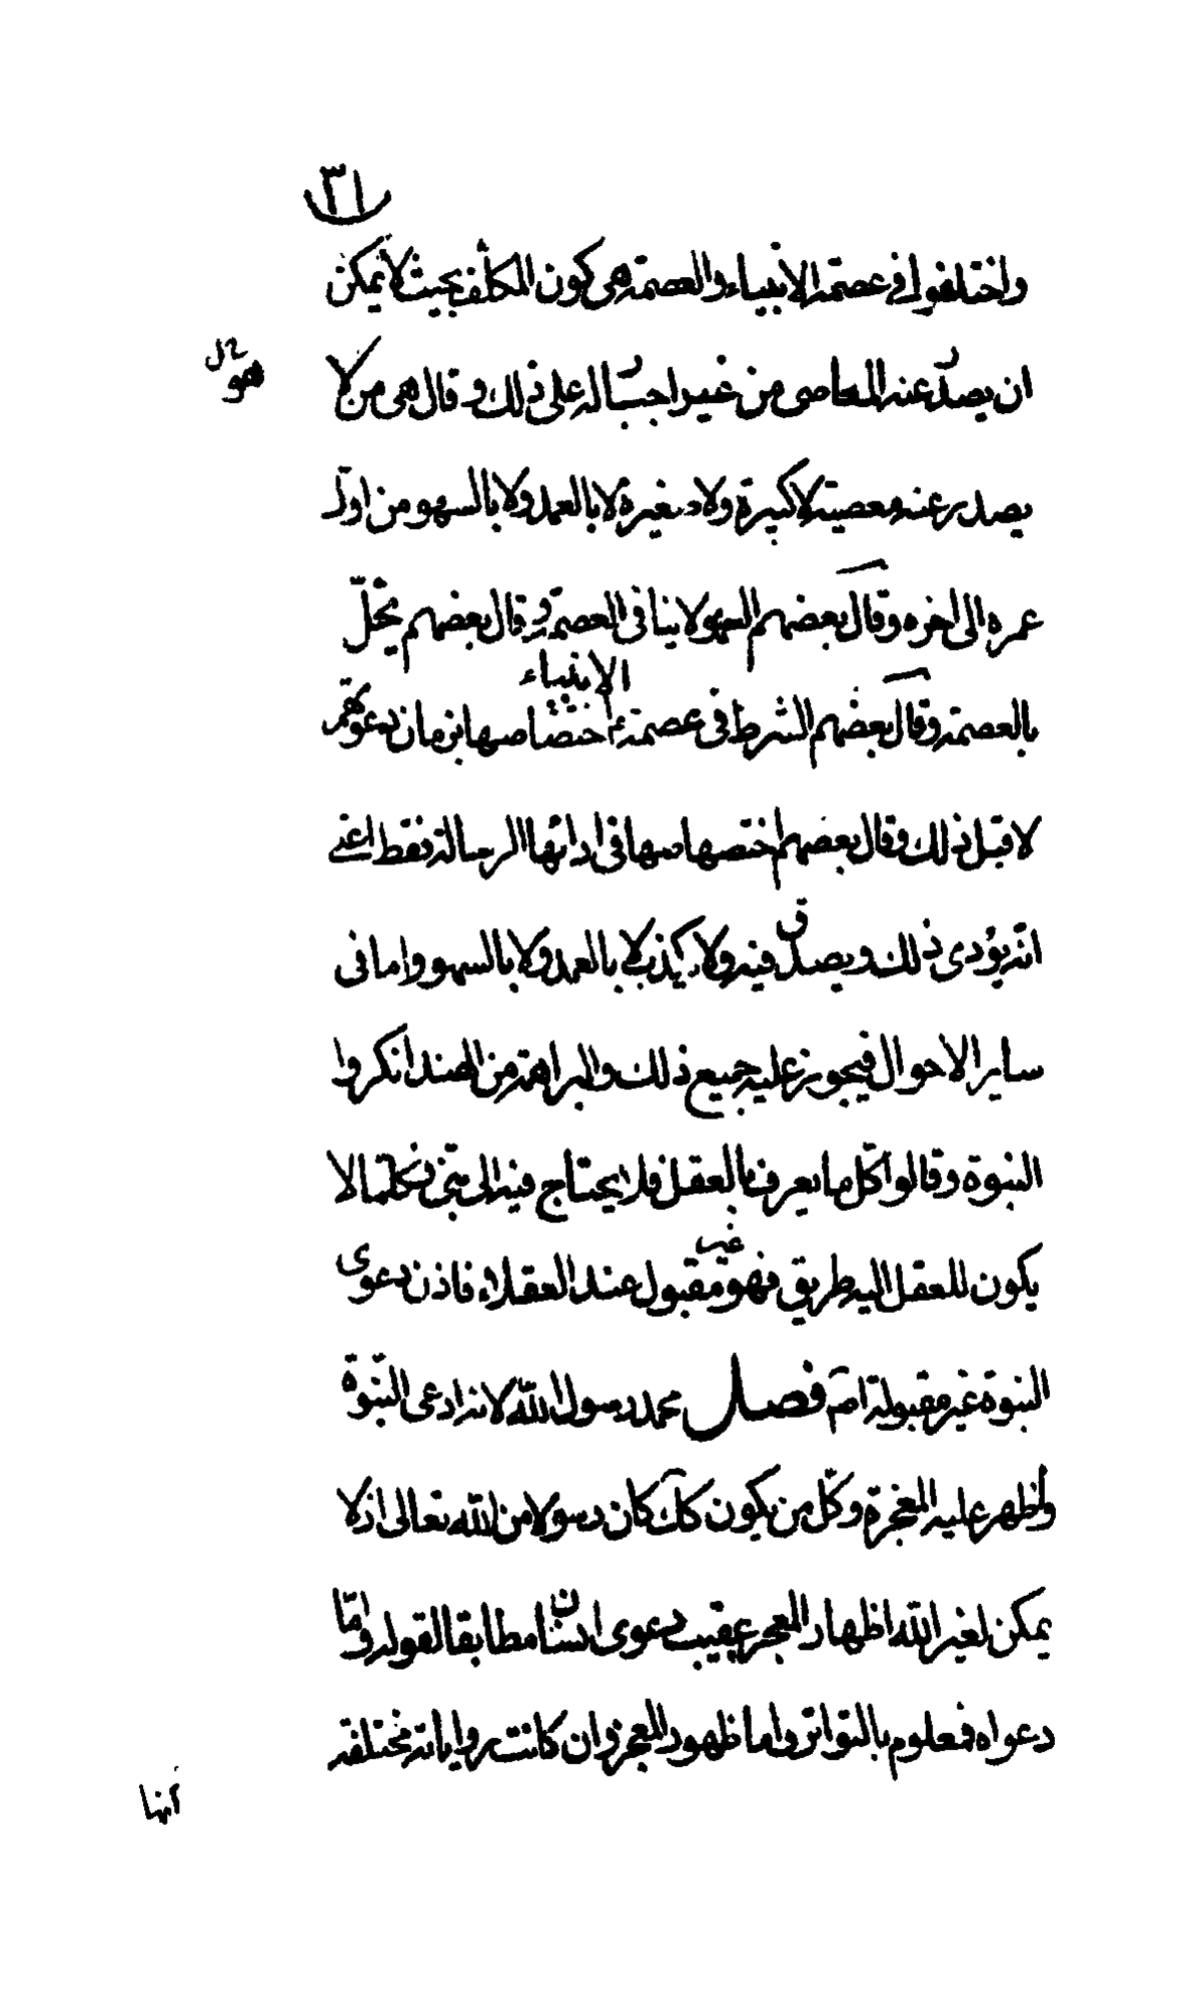 ٣١
واختلفوا في عصمة الانبياء والعصمة هى كون المكلف بحيث لا يمكن
ان يصدر عنه المعاصى من غير اجبار له على ذلك وقال هى من لا
يصدر عنه معصية لا كبيرة ولا صغيرة لا بالعمد ولا بالسهو من اول
عمره الى اخره وقال بعضهم السهو لا ينافى العصمة وقال بعضهم يخلّ
بالعصمة وقال بعضهم الشرط فى عصمة الانبياء اختصاصها بزمان دعوتهم
لا قبل ذلك وقال بعضهم اختصها صها فى ادائها الرسالة فقط اعنى
انه يؤدى ذلك ويصدق فيه ولا يكذب لا بالعمد ولا بالسهو واما فى
ساير الاحوال فيجوز عليه جميع ذلك والبراهمة من الهند انكروا
النبوة وقالوا كل ما يعرف بالعقل فلا يحتاج فيه الى نبى وكلما لا
يكون للعقل اليه طريق فهو غير مقبول عند العقلاء فاذن دعوى
النبوة غير مقبولة اصم فصل محمد رسول الله لانه ادعى النبوة
واظهر عليه المعجزة وكل من يكون كك كان رسولا من الله تعالى اذ لا
يمكن لغير الله اظهار المعجز عقيب دعوى انسان مطابقا لقوله واما
دعواه فمعلوم بالتواتر واما ظهور المعجز وان كانت رواياته مختلفة